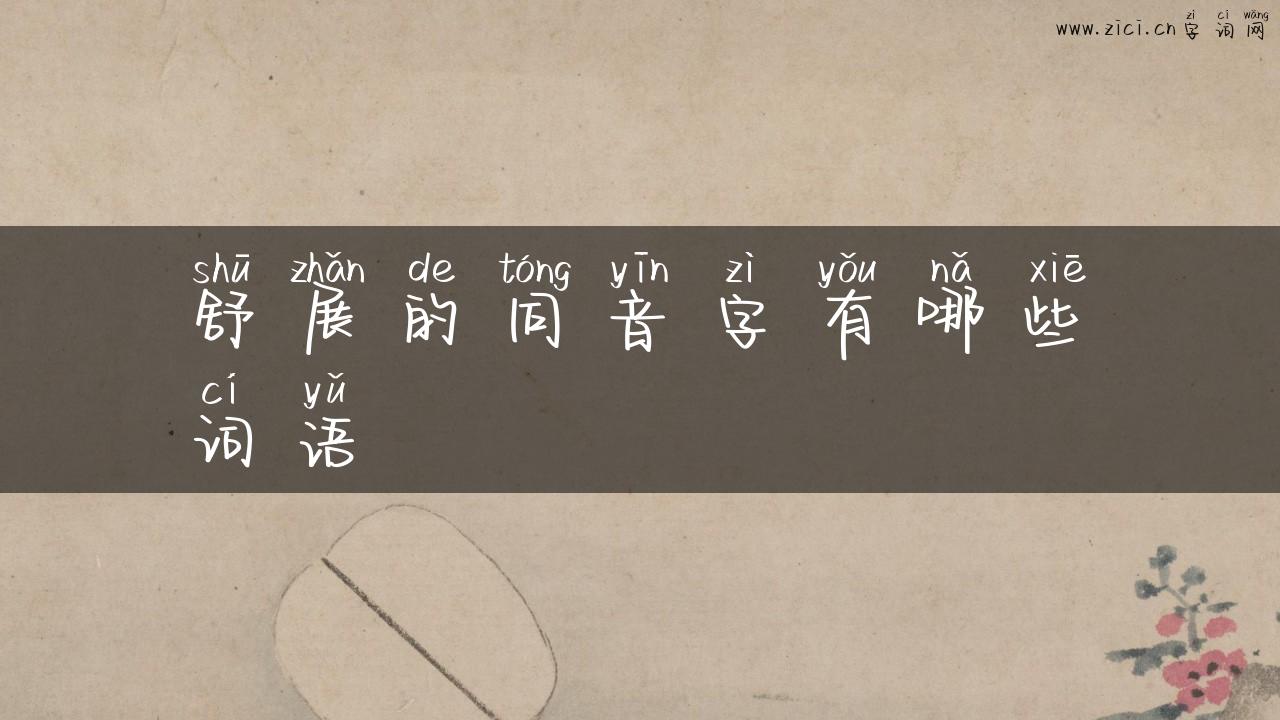 zì cí wǎng
www.zici.cn字词网
shū zhǎn de tóng yīn zì yǒu nǎ xiē
舒展的同音字有哪些
cí yǔ
词语